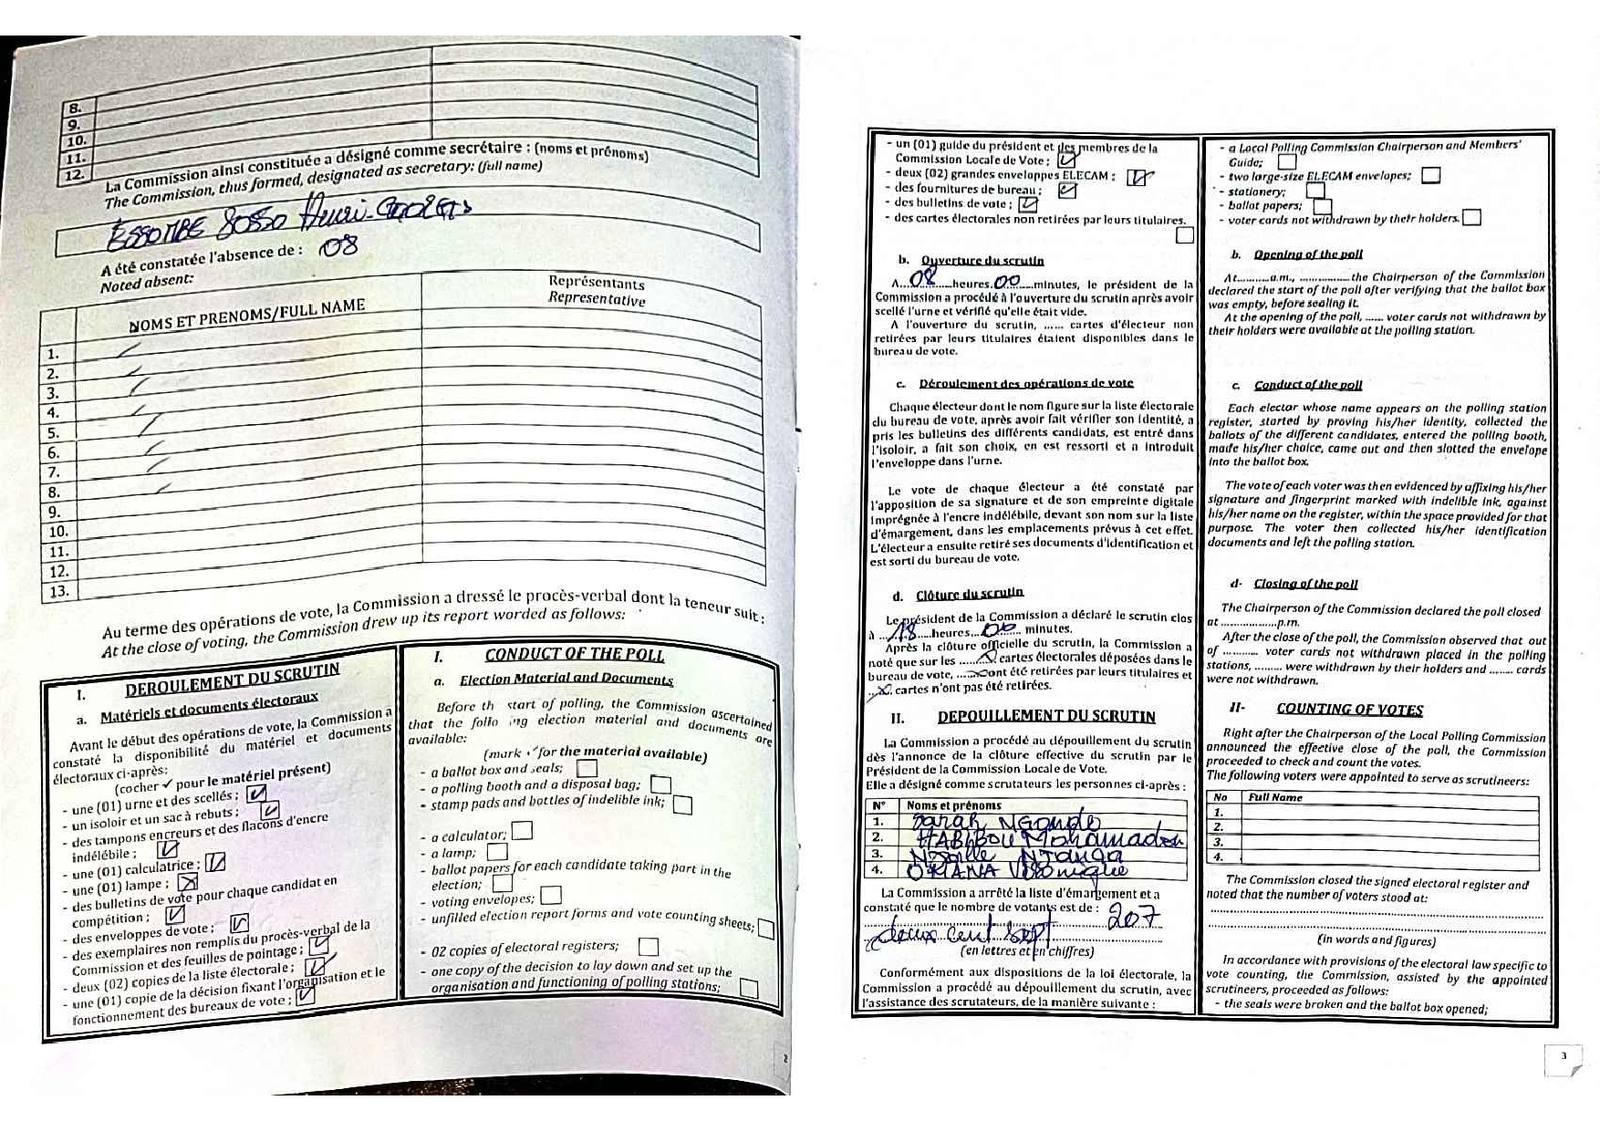 8.
9.
10.
11.
12.
La Commission ainsi constituée a désigné comme secrétaire : (noms et prénoms)
The Commission, thus formed, designated as secretary: (full name)
ESSOMBE SOSSO Henri-Georges
A été constatée l'absence de : 08
Noted absent:
NOMS ET PRENOMS/FULL NAME
Représentants
Representative
1.
2.
3.
4.
5.
6.
7.
8.
9.
10.
11.
12.
13.
Au terme des opérations de vote, la Commission a dressé le procès-verbal dont la teneur suit :
At the close of voting, the Commission drew up its report worded as follows:
I. DEROULEMENT DU SCRUTIN
a. Matériels et documents électoraux
Avant le début des opérations de vote, la Commission a
constaté la disponibilité du matériel et documents
électoraux ci-après:
(cocher ✓ pour le matériel présent)
- une (01) urne et des scellés ;
- un isoloir et un sac à rebuts ;
- des tampons encreurs et des flacons d'encre
indélébile ;
- une (01) calculatrice ;
- une (01) lampe ;
- des bulletins de vote pour chaque candidat en
compétition ;
- des enveloppes de vote ;
- des exemplaires non remplis du procès-verbal de la
Commission et des feuilles de pointage ;
- deux (02) copies de la liste électorale ;
- une (01) copie de la décision fixant l'organisation et le
fonctionnement des bureaux de vote ;
I. CONDUCT OF THE POLL
a. Election Material and Documents
Before th start of polling, the Commission ascertained
that the follo ing election material and documents are
available:
(mark ✓ for the material available)
- a ballot box and seals;
- a polling booth and a disposal bag;
- stamp pads and bottles of indelible ink;
- a calculator;
- a lamp;
- ballot papers for each candidate taking part in the
election;
- voting envelopes;
- unfilled election report forms and vote counting sheets;
- 02 copies of electoral registers;
- one copy of the decision to lay down and set up the
organisation and functioning of polling stations;
2
- un (01) guide du président et des membres de la
Commission Locale de Vote ;
- deux (02) grandes enveloppes ELECAM ;
- des fournitures de bureau ;
- des bulletins de vote ;
- des cartes électorales non retirées par leurs titulaires.
b. Ouverture du scrutin
A 08 heures 00 minutes, le président de la
Commission a procédé à l'ouverture du scrutin après avoir
scellé l'urne et vérifié qu'elle était vide.
A l'ouverture du scrutin, ...... cartes d'électeur non
retirées par leurs titulaires étaient disponibles dans le
bureau de vote.
c. Déroulement des opérations de vote
Chaque électeur dont le nom figure sur la liste électorale
du bureau de vote, après avoir fait vérifier son identité, a
pris les bulletins des différents candidats, est entré dans
l'isoloir, a fait son choix, en est ressorti et a introduit
l'enveloppe dans l'urne.
Le vote de chaque électeur a été constaté par
l'apposition de sa signature et de son empreinte digitale
imprégnée à l'encre indélébile, devant son nom sur la liste
d'émargement, dans les emplacements prévus à cet effet.
L'électeur a ensuite retiré ses documents d'identification et
est sorti du bureau de vote.
d. Clôture du scrutin
Le président de la Commission a déclaré le scrutin clos
à 18 heures 00 minutes.
Après la clôture officielle du scrutin, la Commission a
noté que sur les ...X cartes électorales déposées dans le
bureau de vote, ...X ont été retirées par leurs titulaires et
X cartes n'ont pas été retirées.
II. DEPOUILLEMENT DU SCRUTIN
La Commission a procédé au dépouillement du scrutin
dès l'annonce de la clôture effective du scrutin par le
Président de la Commission Locale de Vote.
Elle a désigné comme scrutateurs les personnes ci-après :
N° Noms et prénoms
1. Sarah NGONDO
2. HABIBOU Mohamadou
3. NTONGA
4. Véronique
La Commission a arrêté la liste d'émargement et a
constaté que le nombre de votants est de : 207
deux cent sept
(en lettres et en chiffres)
Conformément aux dispositions de la loi électorale, la
Commission a procédé au dépouillement du scrutin, avec
l'assistance des scrutateurs, de la manière suivante :
- a Local Polling Commission Chairperson and Members'
Guide;
- two large-size ELECAM envelopes;
- stationery;
- ballot papers;
- voter cards not withdrawn by their holders.
b. Opening of the poll
At..........a.m., .................the Chairperson of the Commission
declared the start of the poll after verifying that the ballot box
was empty, before sealing it.
At the opening of the poll, ...... voter cards not withdrawn by
their holders were available at the polling station.
c. Conduct of the poll
Each elector whose name appears on the polling station
register, started by proving his/her identity, collected the
ballots of the different candidates, entered the polling booth,
made his/her choice, came out and then slotted the envelope
into the ballot box.
The vote of each voter was then evidenced by affixing his/her
signature and fingerprint marked with indelible ink, against
his/her name on the register, within the space provided for that
purpose. The voter then collected his/her identification
documents and left the polling station.
d- Closing of the poll
The Chairperson of the Commission declared the poll closed
at ..................p.m.
After the close of the poll, the Commission observed that out
of ........... voter cards not withdrawn placed in the polling
stations, ......... were withdrawn by their holders and ........ cards
were not withdrawn.
II- COUNTING OF VOTES
Right after the Chairperson of the Local Polling Commission
announced the effective close of the poll, the Commission
proceeded to check and count the votes.
The following voters were appointed to serve as scrutineers:
No Full Name
1.
2.
3.
4.
The Commission closed the signed electoral register and
noted that the number of voters stood at:
(in words and figures)
In accordance with provisions of the electoral law specific to
vote counting, the Commission, assisted by the appointed
scrutineers, proceeded as follows:
- the seals were broken and the ballot box opened;
3